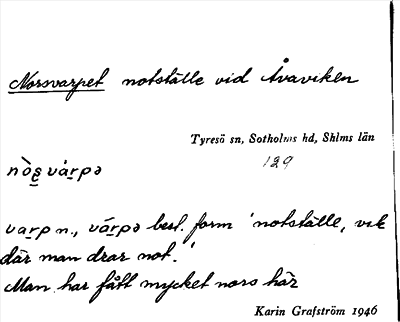 Norsvarpet notställe vid Åvaviken
Tyresö sn, Sotholms hd, Sthlms län
129
nò̀s̱váṟpə
vaṟp n., váṟpə best. form 'notställe, vik
där man drar not.'
Man har fått mycket nors här
Karin Grafström 1946